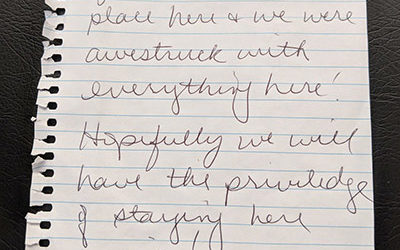 place here & we were
awestruck with
everything here!
Hopefully we will
have the priviledge
of staying here